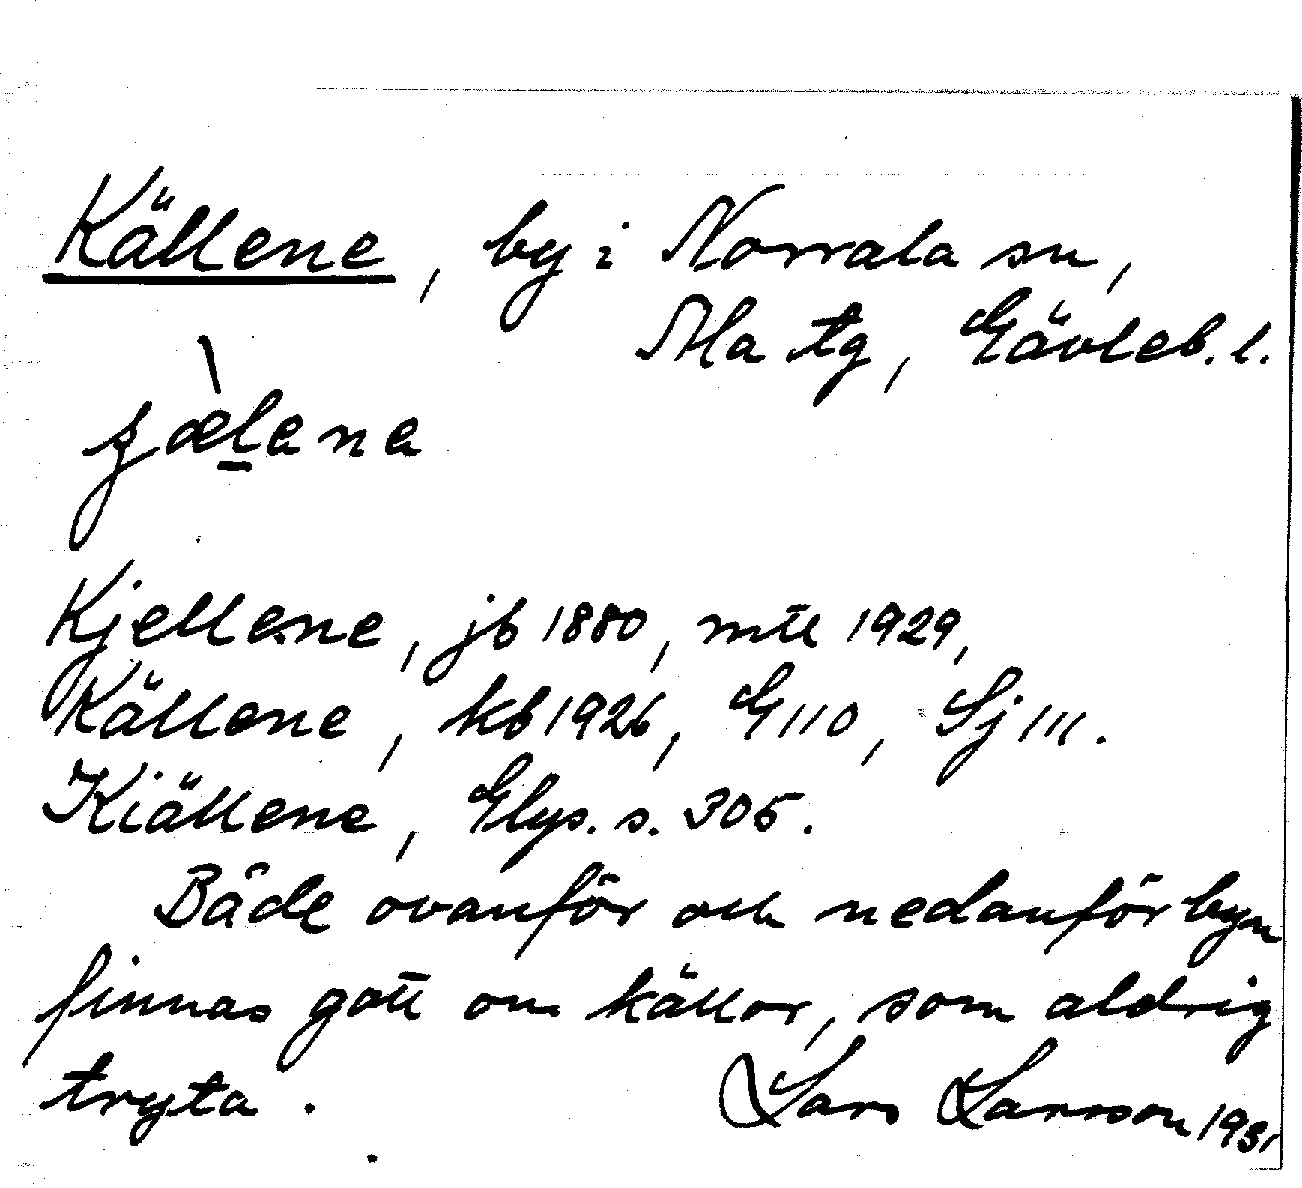 Källene, by i Norrala sn,
Ala tg, Gävleb. l.
Kjellene, jb 1880, mtl 1929,
Källene, kb 1926, G 110, Sj 111.
Kiällene, Glys. s. 305.
Både ovanför och nedanför byn
finnas gott om källor, som aldrig
tryta.
Lars Larsson 1931